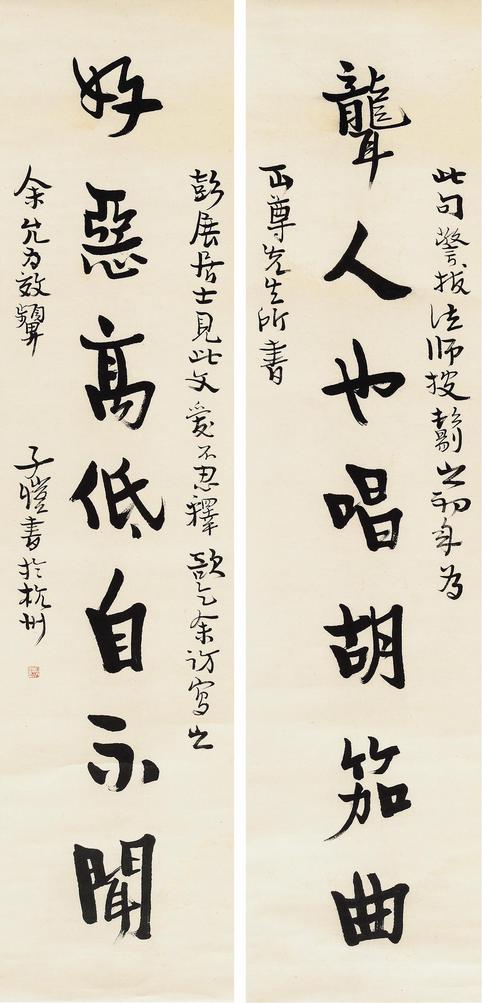 此句警拔法師披鬀之初年為
聾人也唱胡笳曲
正尊先生所書
彭展居士見此文愛不忍釋欵乞余訪寫之
好惡高低自不聞
余允為效顰 子愷書於杭州